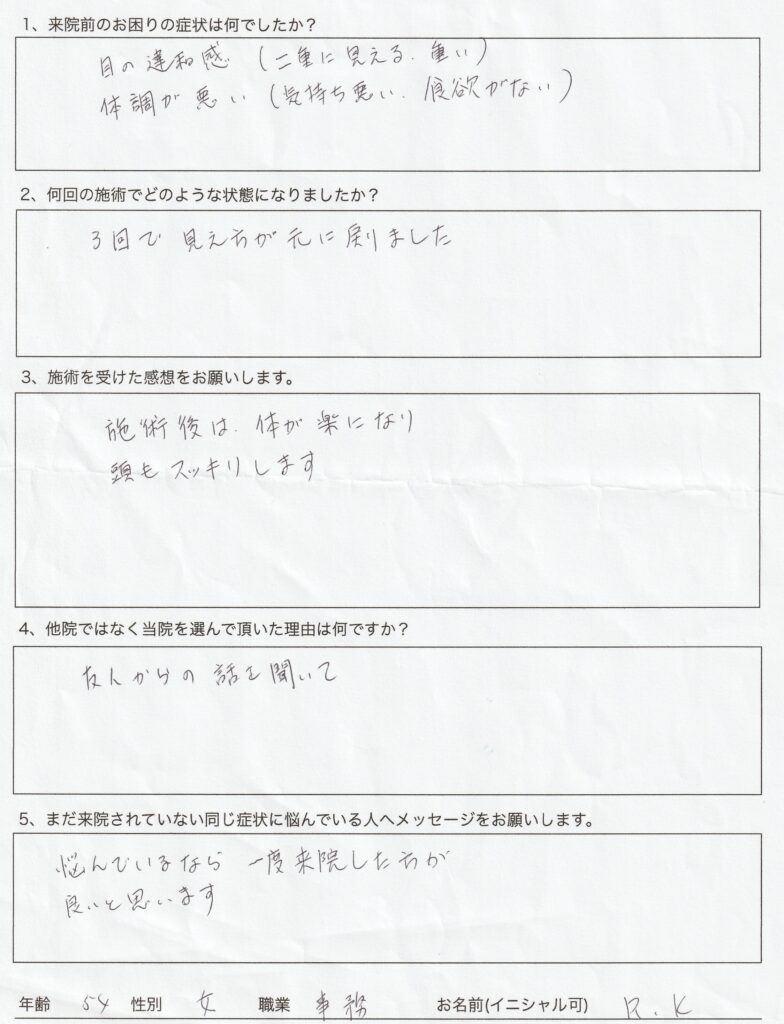 1、来院前のお困りの症状は何でしたか？
目の違和感（二重に見える、重い）
体調が悪い（気持ち悪い、食欲がない）
2、何回の施術でどのような状態になりましたか？
3回で見え方が元に戻りました
3、施術を受けた感想をお願いします。
施術後は、体が楽になり
頭もスッキリします
4、他院ではなく当院を選んで頂いた理由は何ですか？
友人からの話を聞いて
5、まだ来院されていない同じ症状に悩んでいる人へメッセージをお願いします。
悩んでいるなら一度来院した方が
良いと思います
年齢 54 性別 女 職業 事務 お名前(イニシャル可) R.K